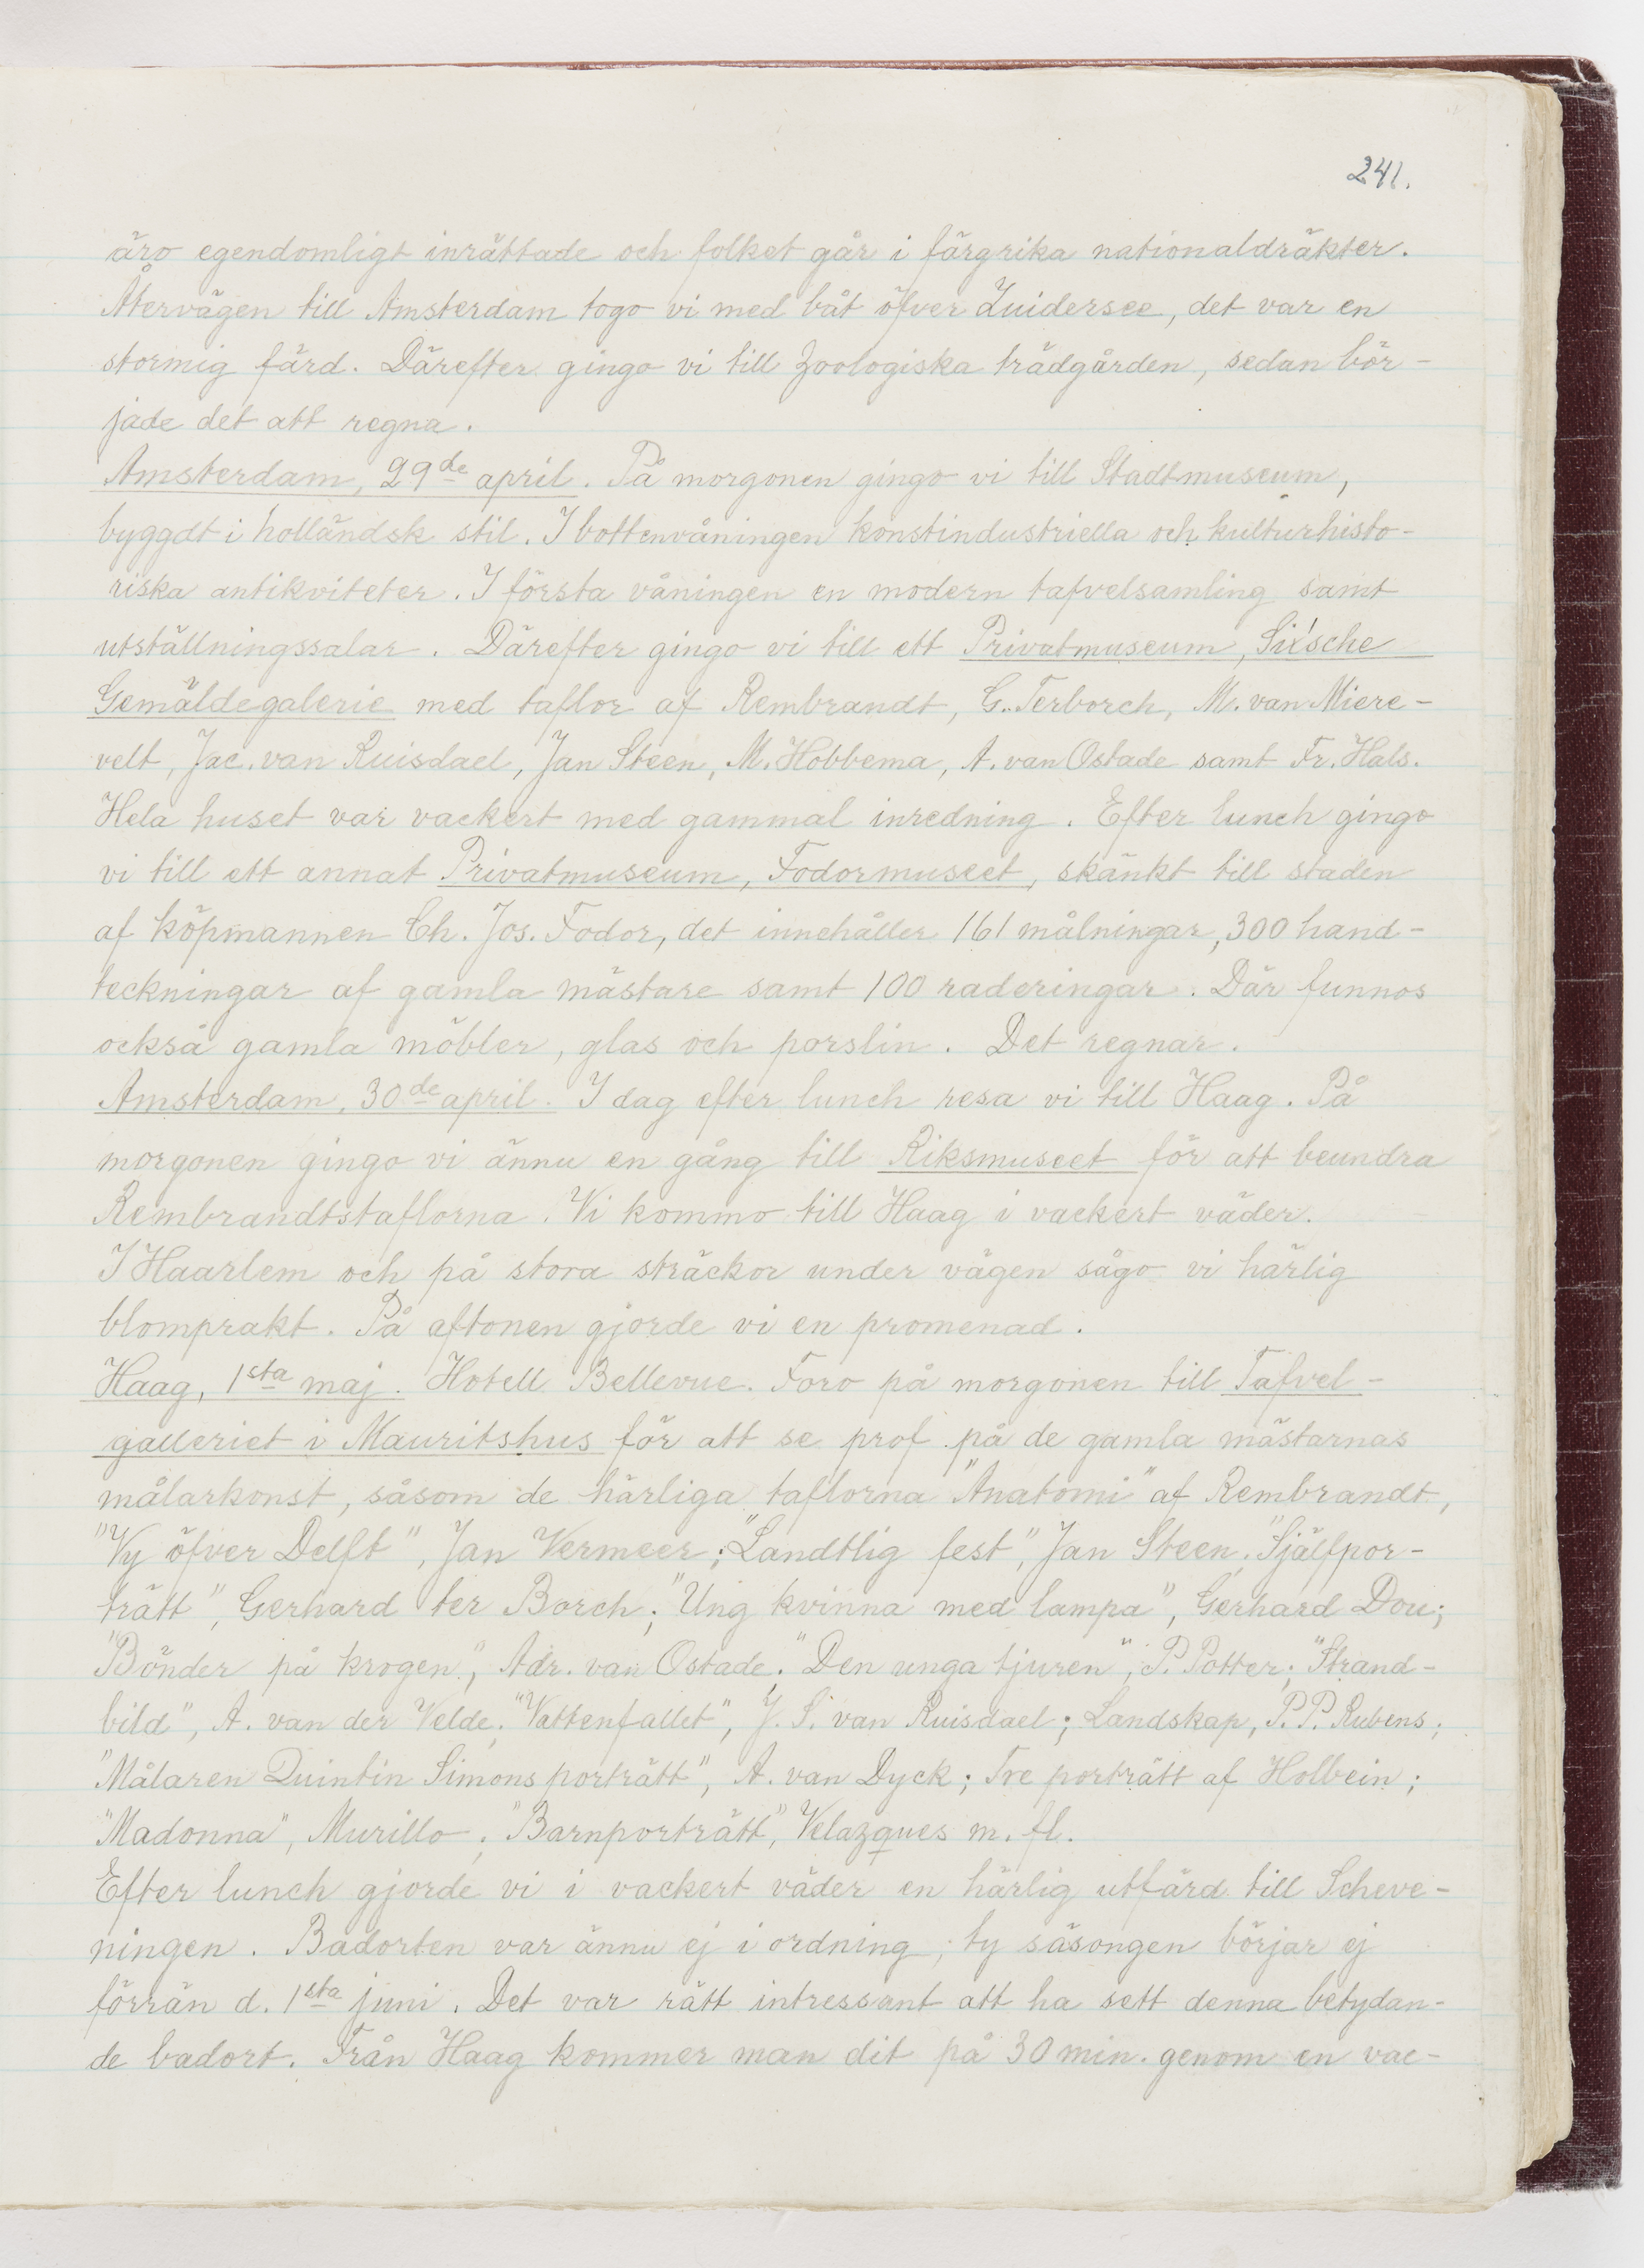 241.
äro egendomligt inrättade och folket går i färgrika nationaldräkter.
Återvägen till Amsterdam togo vi med båt öfver Zuidersee, det var en
stormig färd. Därefter gingo vi till Zoologiska trädgården, sedan bör-
jade det att regna.
Amsterdam, 29de april. På morgonen gingo vi till Stadtmuseum,
byggdt i holländsk stil. I bottenvåningen konstindustriella och kulturhisto-
riska antikviteter. I första våningen en modern tafvelsamling samt
utställningssalar. Därefter gingo vi till ett Privatmuseum, Six'sche
Gemäldegalerie med taflor af Rembrandt, G. Terborch, M. van Miere-
velt, Jac. van Ruisdael, Jan Steen, M. Hobbema, A. van Ostade samt Fr. Hals.
Hela huset var vackert med gammal inredning. Efter lunch gingo
vi till ett annat Privatmuseum, Fodormuseet, skänkt till staden
af köpmannen Ch. Jos. Fodor, det innehåller 161 målningar, 300 hand-
teckningar af gamla mästare samt 100 raderingar. Där funnos
också gamla möbler, glas och porslin. Det regnar.
Amsterdam, 30de april. I dag efter lunch resa vi till Haag. På
morgonen gingo vi ännu en gång till Riksmuseet för att beundra
Rembrandtstaflorna. Vi kommo till Haag i vackert väder.
I Haarlem och på stora sträckor under vägen sågo vi härlig
blomprakt. På aftonen gjorde vi en promenad.
Haag, 1sta maj. Hotell Bellevue. Foro på morgonen till Tafvel-
galleriet i Mauritshus för att se prof på de gamla mästarnas
målarkonst, såsom de härliga taflorna "Anatomi" af Rembrandt,
"Vy öfver Delft", Jan Vermeer; "Landtlig fest", Jan Steen. "Själfpor-
trätt", Gerhard ter Borch; "Ung kvinna med lampa", Gerhard Dou;
"Bönder på krogen", Adr. van Ostade; "Den unga tjuren", P. Potter; "Strand-
bild", A. van der Velde; "Vattenfallet", J. S. van Ruisdael; Landskap, P. P. Rubens;
"Målaren Quintin Simons porträtt", A. van Dyck; Tre porträtt af Holbein;
"Madonna", Murillo; "Barnporträtt", Velazques m. fl.
Efter lunch gjorde vi i vackert väder en härlig utfärd till Scheve-
ningen. Badorten var ännu ej i ordning, ty säsongen börjar ej
förrän d. 1sta juni. Det var rätt intressant att ha sett denna betydan-
de badort. Från Haag kommer man dit på 30 min. genom en vac-